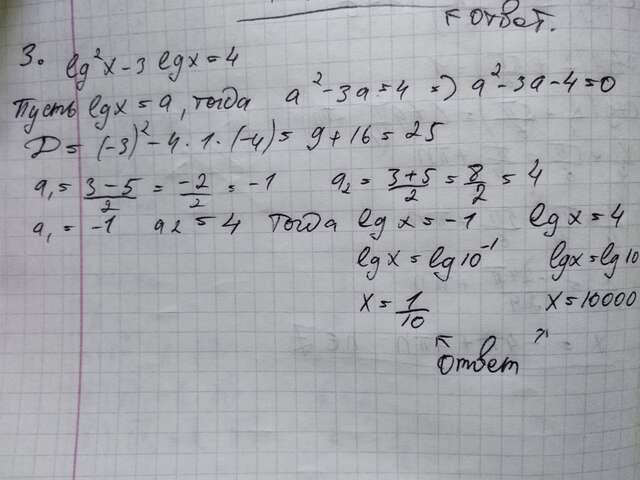 ответ.
3. lg²x-3 lgx=4
Пусть lgx=a, тогда a²-3a=4 => a²-3a-4=0
D=(-3)²-4·1·(-4)=9+16=25
a₁=(3-5)/2=(-2)/2=-1 a₂=(3+5)/2=8/2=4
a₁=-1 a₂=4 тогда lgx=-1 lgx=4
lgx=lg10⁻¹ lgx=lg10
x=1/10 x=10000
ответ